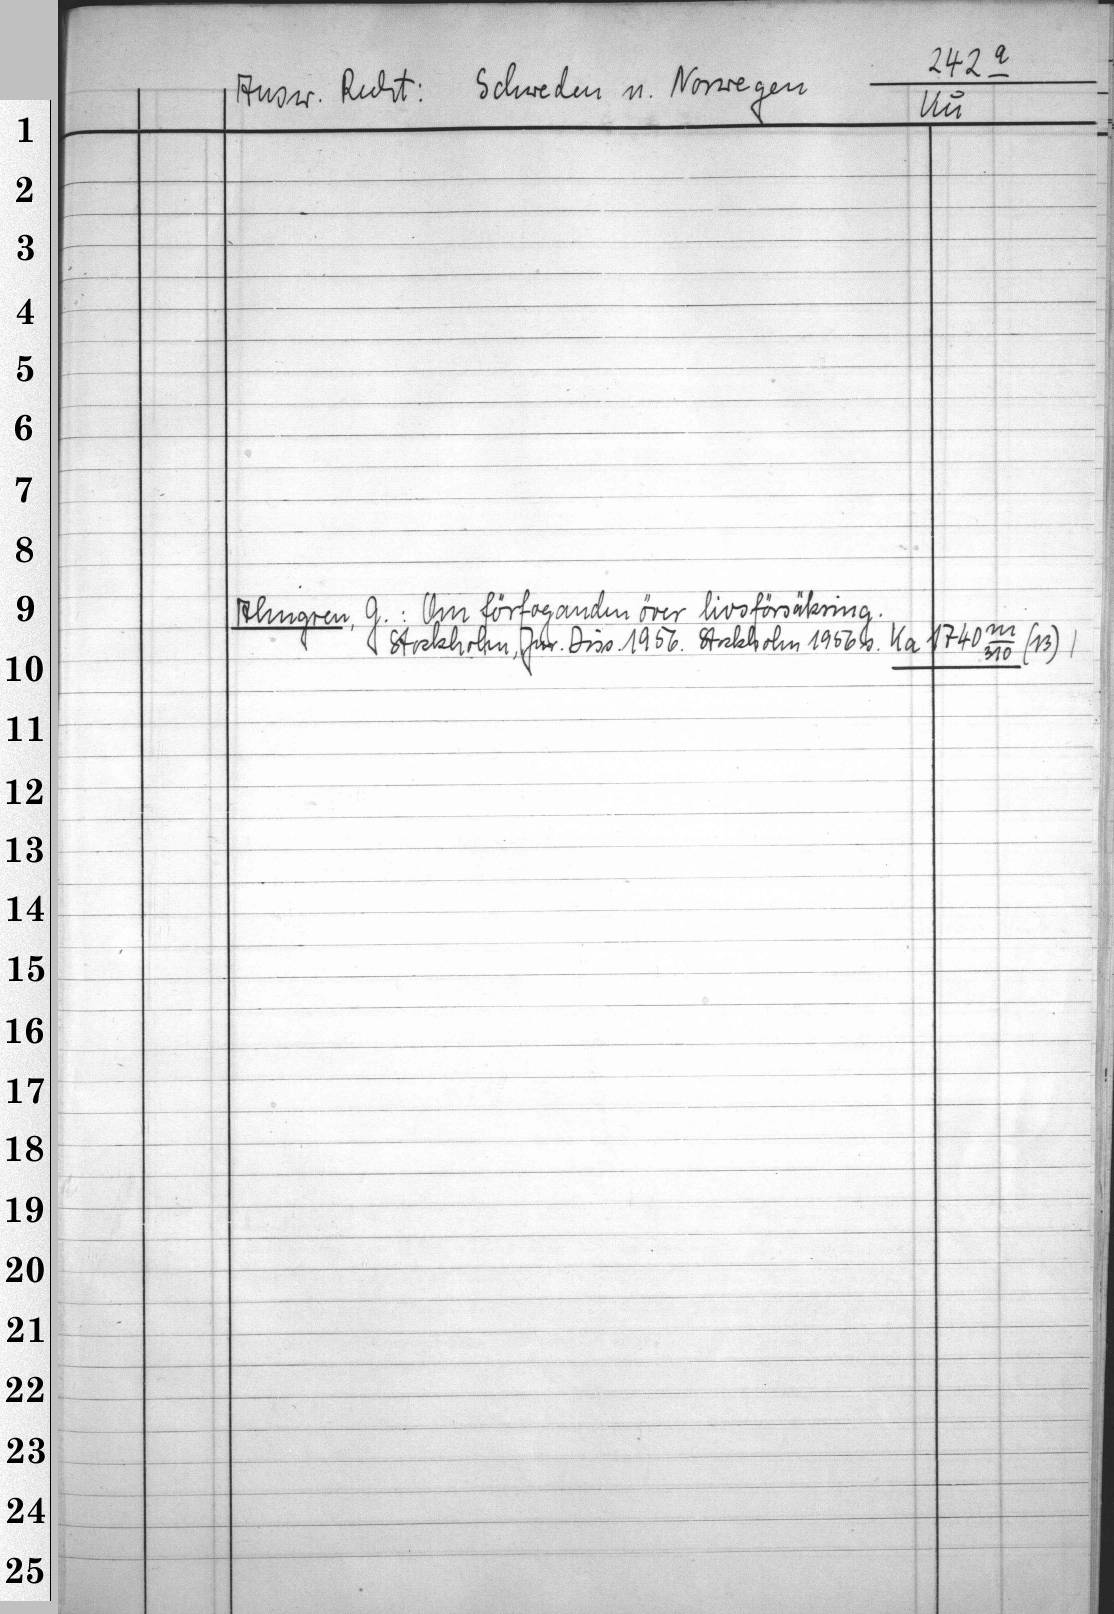 242 a
Ausw. Recht: Schweden u. Norwegen
Kü
1
2
3
4
5
6
7
8
9
Almgren, G. : Om förfoganden över livsförsäkring.
Stockholm, Jur. Diss. 1956. Stockholm 1956. 8. Ka 1740 m/310 (13)
10
11
12
13
14
15
16
17
18
19
20
21
22
23
24
25